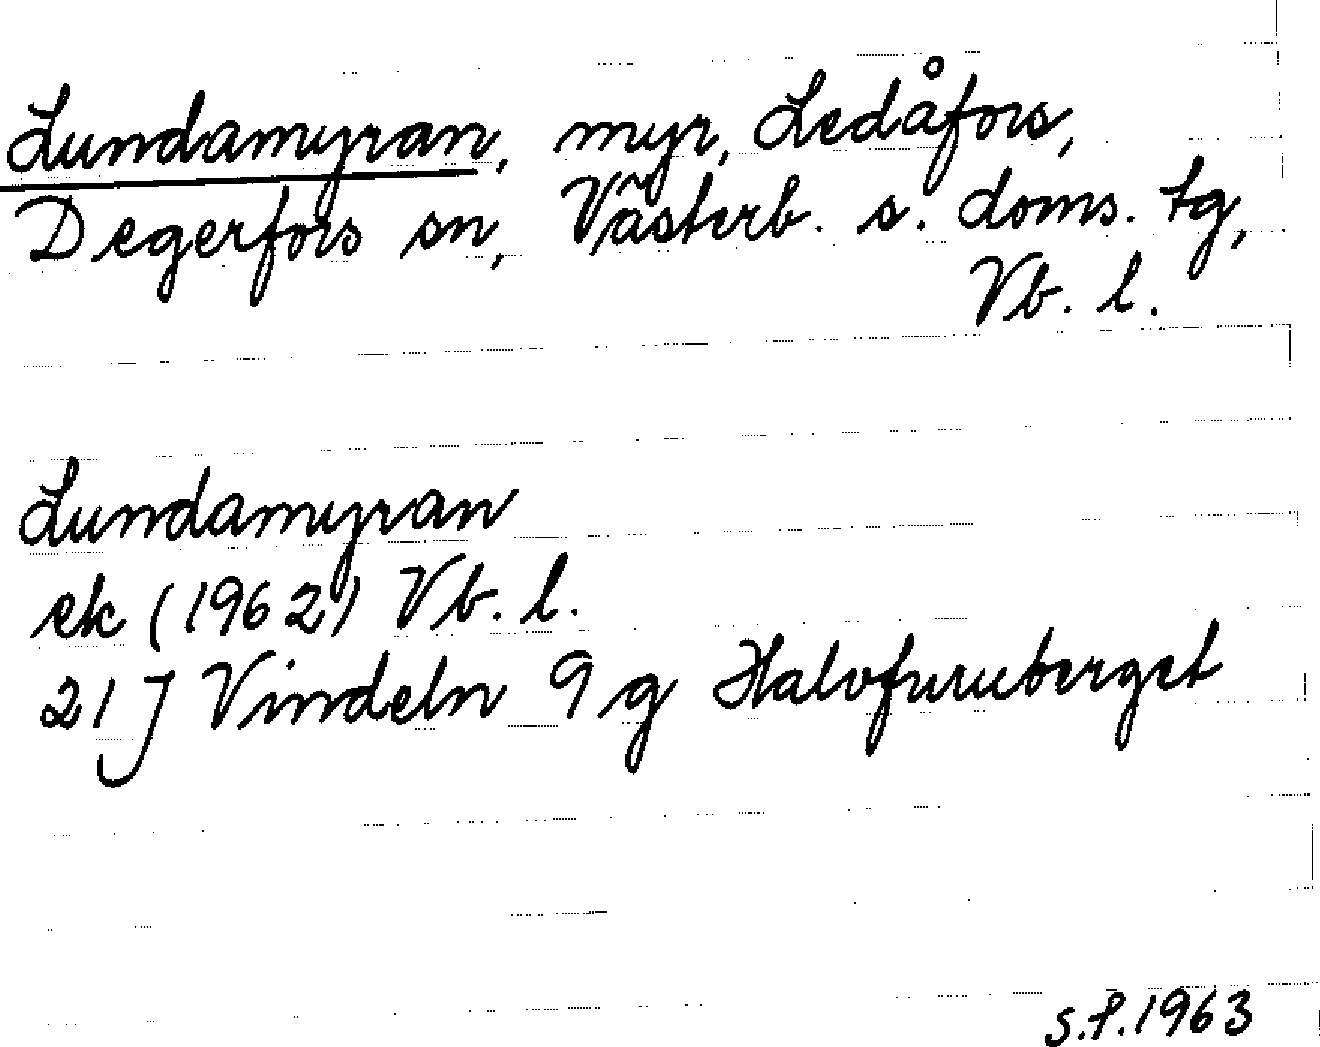 Lundamyran, myr, Ledåfors,
Degerfors sn, Västerb. s. doms. tg,
Vb. l.
Lundamyran
ek (1962) Vb. l.
21 J Vindeln 9 g Halvfuruberget
S.P. 1963